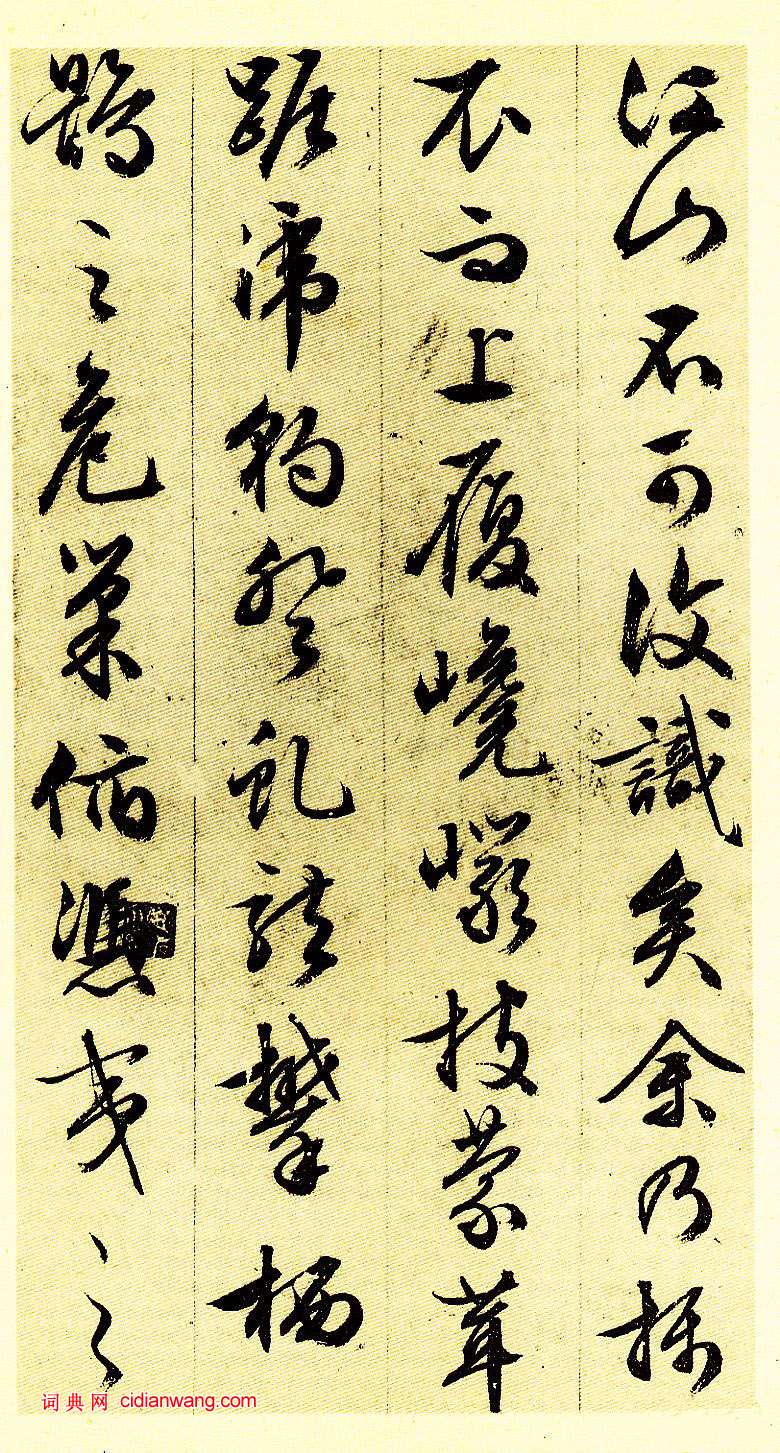 江山不可復識矣余乃攝
衣而上履巉巖披蒙茸
踞虎豹登虬龍攀栖
鶻之危巢俯馮夷之
词典网 cidianwang.com